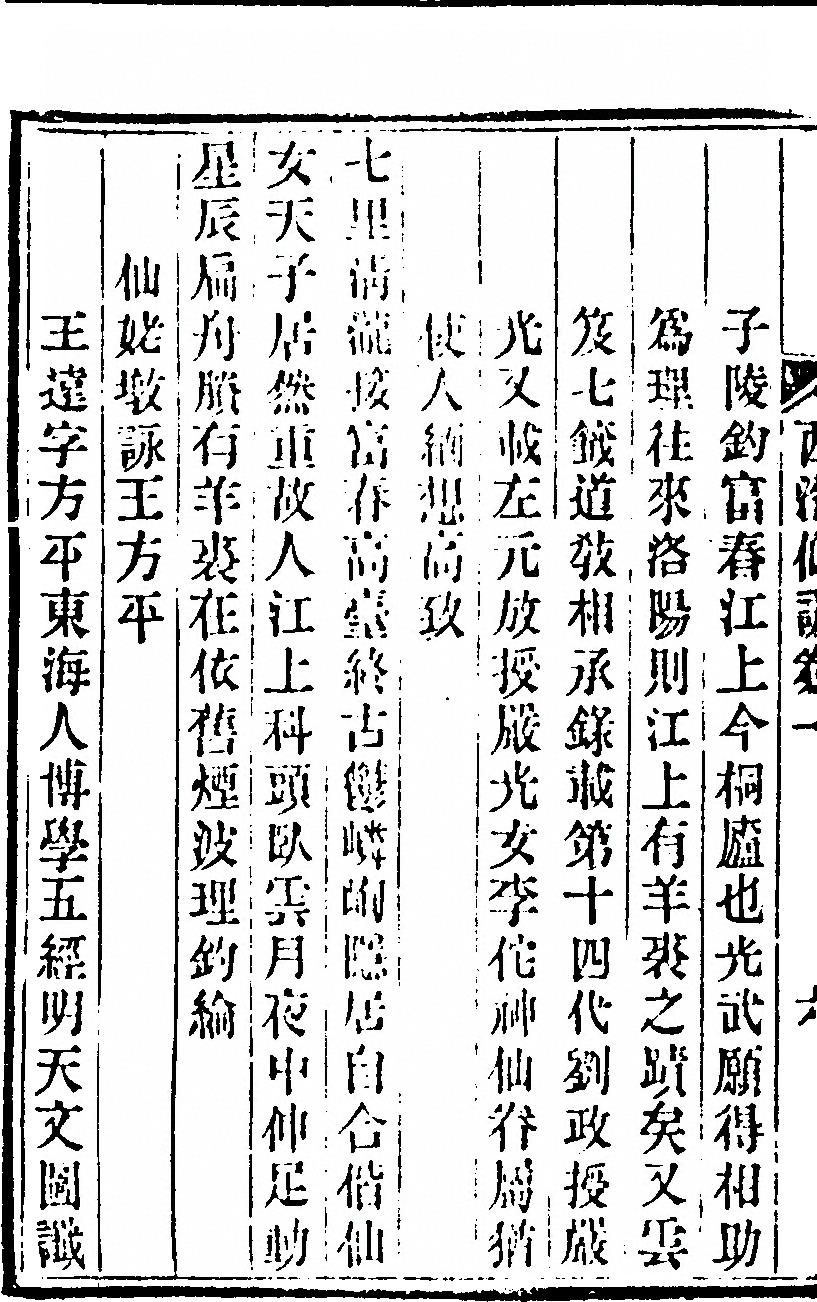 西泠仙詠卷一
子陵釣富春江上今桐廬也光武願得相助
爲理往來洛陽則江上有羊裘之蹟矣又雲
笈七籤道敎相承錄載第十四代劉政授嚴
光又載左元放授嚴光女李佗神仙眷屬猶
使人緬想高致
七里淸瀧接富春高臺終古鬱嶙峋隱居自合偕仙
女天子居然重故人江上科頭臥雲月夜中伸足動
星辰扁舟賸有羊裘在依舊煙波理釣綸
仙姥墩詠王方平
王遠字方平東海人博學五經明天文圖讖